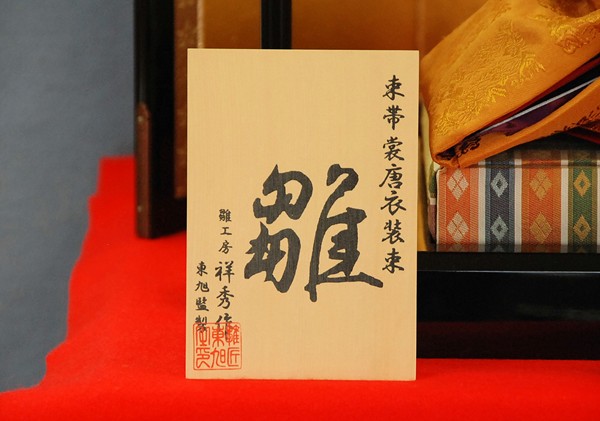 束帯裳唐衣装束
雛
雛工房 祥秀作
東旭監製
雛匠東旭